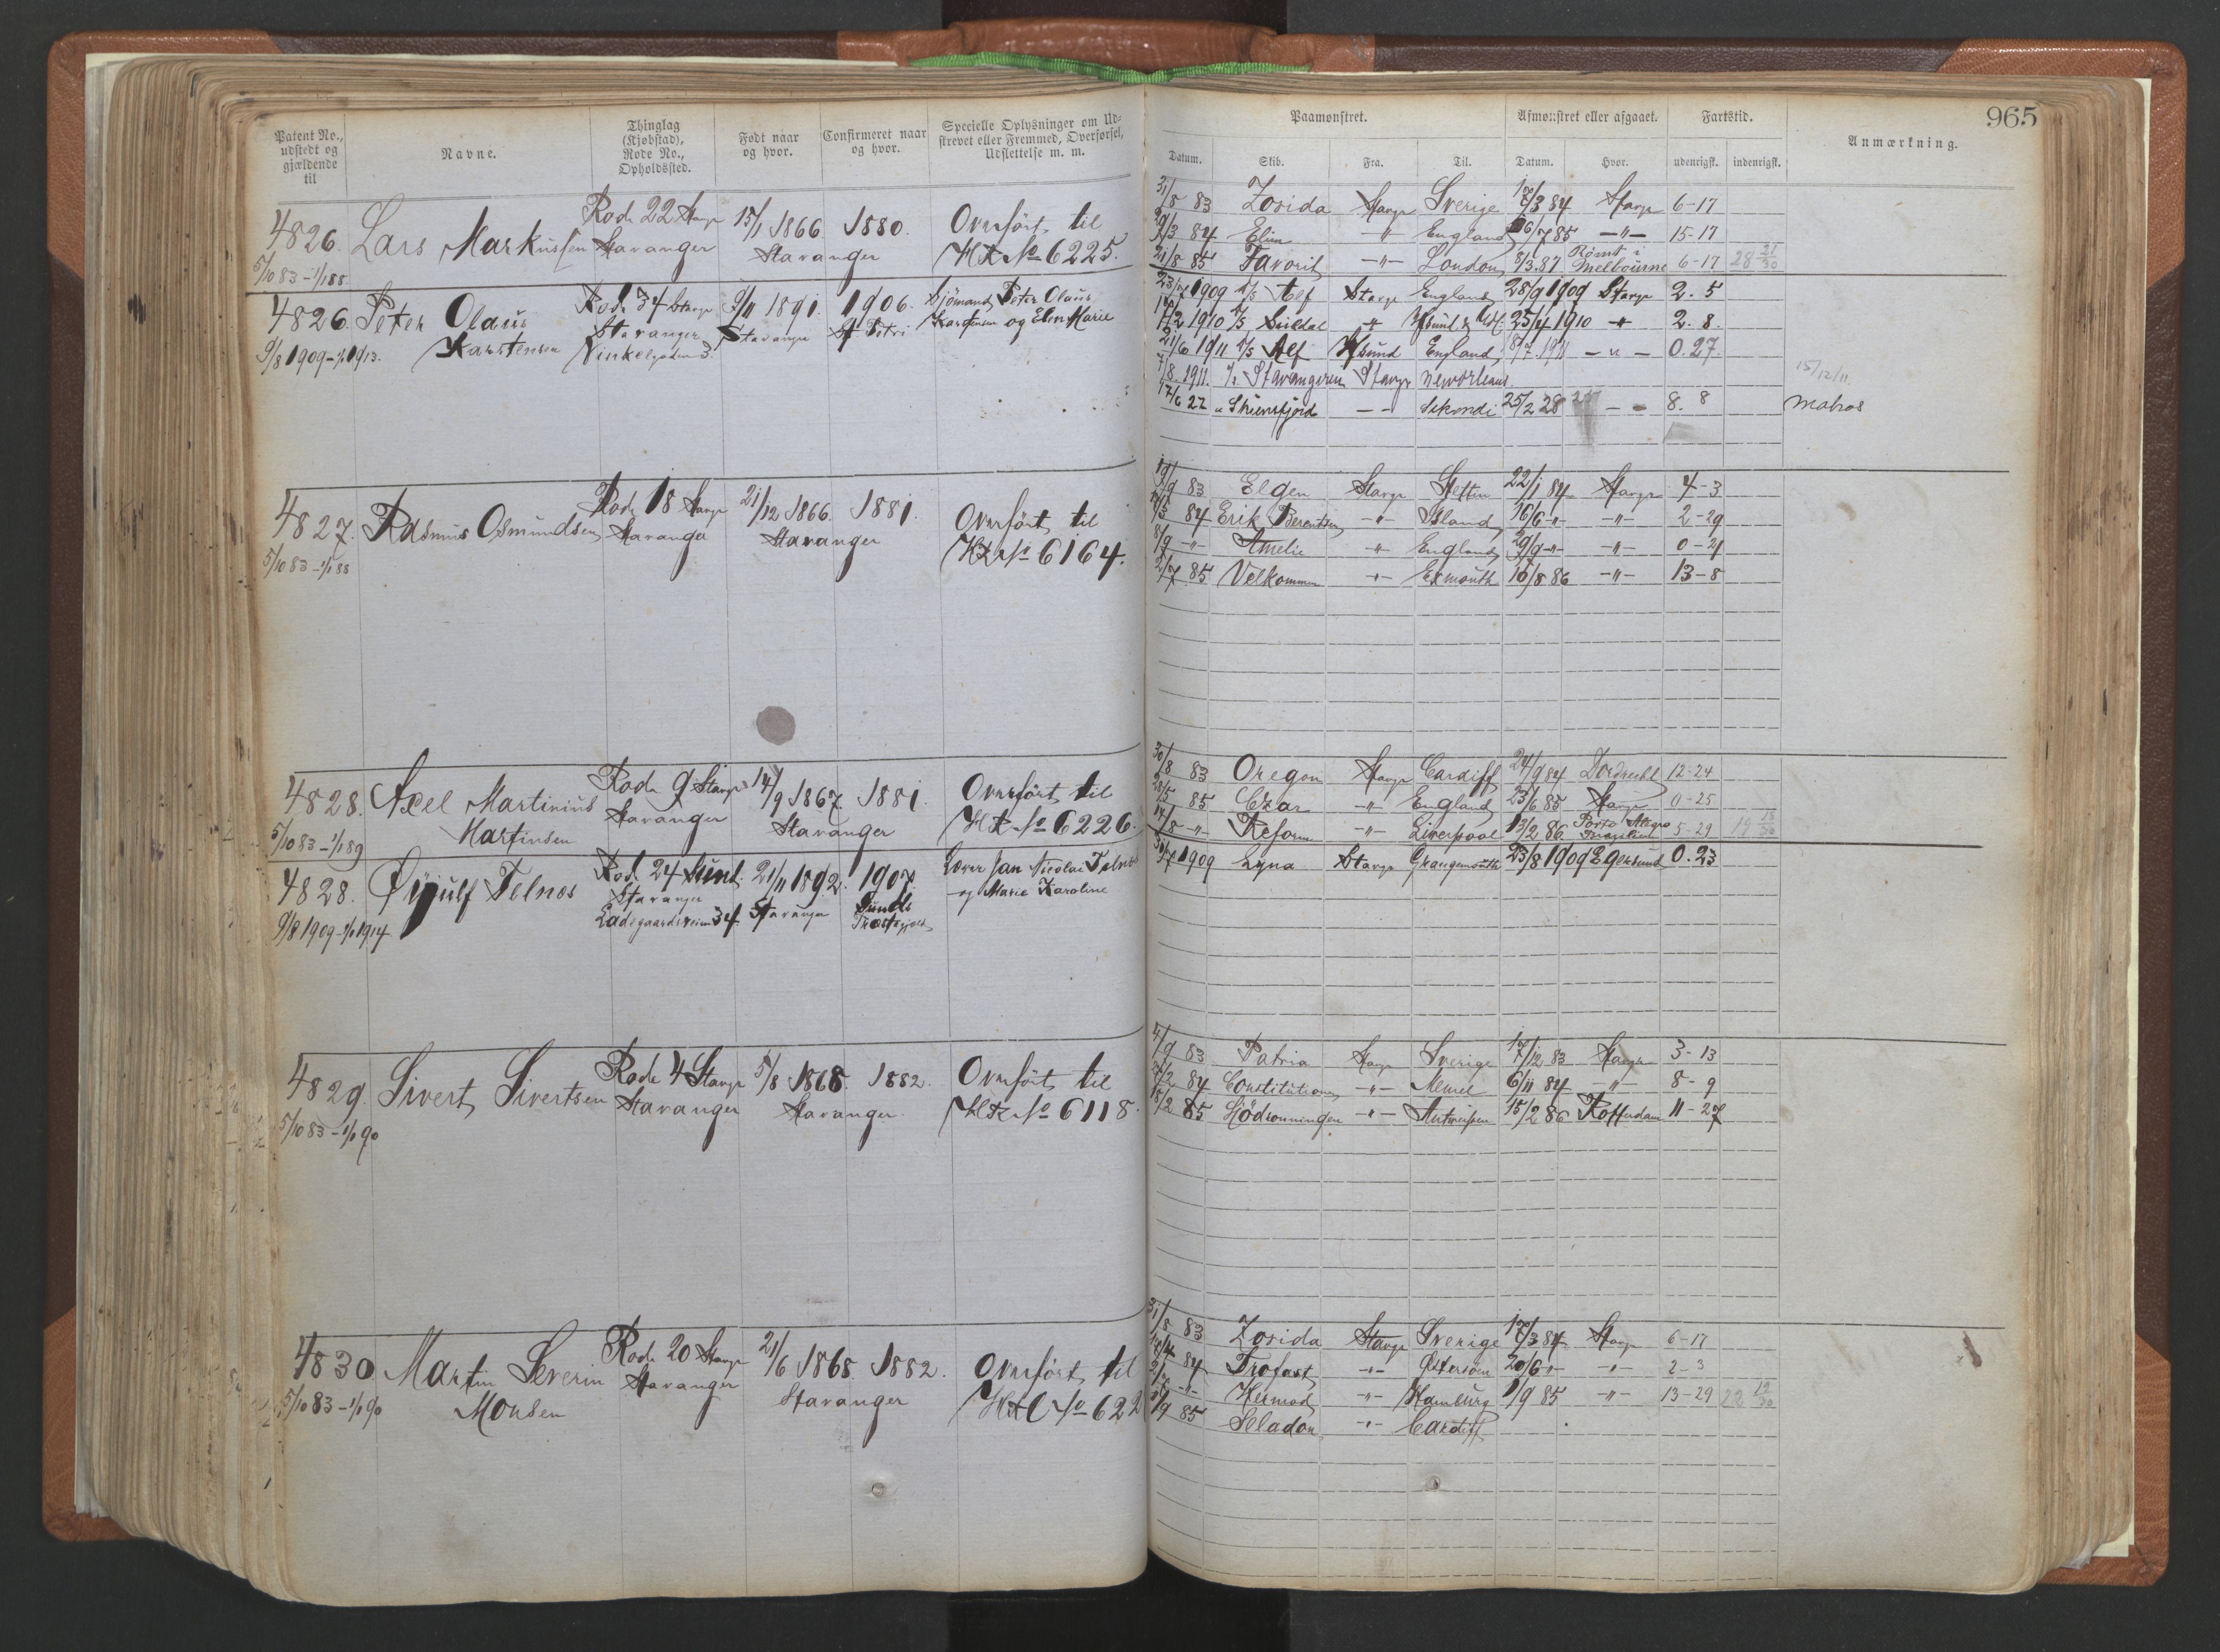 965
Patent No., udstedt og gjældende til
Navne.
Thinglag (Kjøbstad), Rode No., Opholdssted.
Født naar og hvor.
Confirmeret naar og hvor.
Specielle Oplysninger om Udstrevet eller Fremmed, Overførsel, Udslettelse m. m.
Paamønstret.
Afmønstret eller afgaaet.
Fartstid.
Anmærkning.
Datum. Skib. Fra. Til. Datum. Hvor. udenrigsk. indenrigsk.
4826. Lars Markussen Rode 22 Stavgr 15/1 1866 1880. Overført til
5/10 83 - 1/1 88 Stavanger Stavanger HR No 6225.
31/8 83 Zorida Stavgr Sverige 17/3 84 Stavgr 6-17
29/3 84 Elim -"- England 16/7 85 -"- 15-17
21/8 85 Favorit -"- London 8/3.87 Rømt i Melbourne 6-17 28 21/30
4826. Peter Olaus Rode 34 Stavgr 9/11 1891. 1906. Sjömand Peter Olaus
Karstensen Stavanger Stavanger St. Petri Karstensen og Elen Marie
9/8 1909 - 1/1 1913. Vinkelgaden 3.
23/7 1909 Alf Stavgr England 28/9 1909 Stavgr 2. 5
17/2 1910 Suldal 25/4 1910 -"- 2. 8.
21/6 1911 Alf Hsund England 8/7. 1911 -"- 0.27.
7/8. 1911. Stavangeren Stavgr Neworleans 15/12/11.
17/6 27 Skiensfjord - - Sekondi 25/2 28 - - 8. 8 Matros
4827. Rasmus Osmundsen Rode 18 Stavgr 21/12 1866. 1881. Overført til
5/10 83 - 1/1 88 Stavanger Stavanger HR No 6164.
19/9 83 Elgen Stavgr Stettin 22/1 84 Stavgr 4-3
84 Erik Berentsen -"- Island 16/6 -"- -"- 2-29
8/9 -"- Amelie -"- England 29/9 -"- -"- 0-21
2/7 85 Velkommen -"- Exmouth 10/8 86 -"- 13-8
4828. Axel Martinius Rode 9 Stavgr 14/9 1867 1881. Overført til
Martinsen Stavanger Stavanger HR No 6226.
5/10 83 - 1/1 89
30/8 83 Oregon Stavgr Cardiff 24/9 84 Dordrecht 12-24
28/5 85 Czar -"- England 23/6 85 Stavgr 0-25
14/8 -"- Reform -"- Liverpool 13/2 86 Porto Alegro Brasilien 5-29 19 18/30
4828. Øijulf Felnos Rode 24 Sund 21/11 1892. 1907. Lærer Jan Nicolai Felnos
9/8 1909 - 1/1 1914 Stavanger Stavanger Sunds og Marie Karoline
Ladegaardsveien 34. Præstegjeld
1909 Lyna Stavgr Grangemouth 23/8 1909 Egersund 0.23
4829. Sivert Sivertsen Rode 4 Stavgr 5/8 1868. 1882. Overført til
5/10 83 - 1/1 90 Stavanger Stavanger. HR No 6118.
4/9 83 Patria Stavgr Sverige 17/12 83 Stavgr 3-13
84 Constitution -"- Memel 6/11 84 -"- 8-9
18/2 85 Sjödronningen -"- Antwerpen 15/2 86 Rotterdam 11-27
4830 Martin Severin Rode 20 Stavgr 21/6 1868. 1882. Overført til
Monsen Stavanger Stavanger No 622
5/10 83 - 1/1 90
31/8 83 Zorida Stavgr Sverige 17/3 84 Stavgr 6-17
84 Trofast -"- Østersøen 20/6 -"- -"- 2-3
-"- Hermod -"- Hamburg 1/9 85 -"- 13-29 22 19/30
9 85 Seladon -"- Cardiff